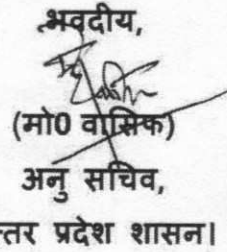 भवदीय,
(मो0 वासिफ)
अनु सचिव,
त्तर प्रदेश शासन।